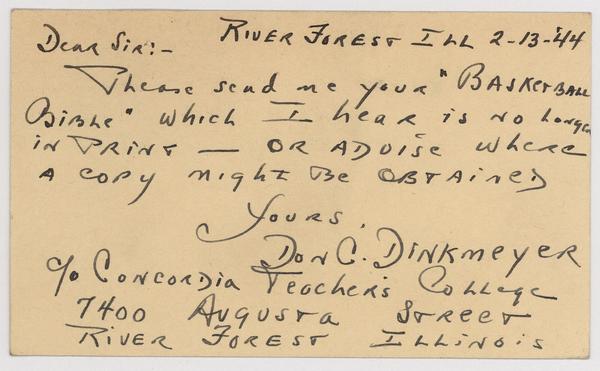 River Forest Ill 2-13-'44
Dear Sir:-
Please send me your "Basketball
Bible" which I hear is no longer
in print — or advise where
a copy might be obtained
Yours,
Don C. Dinkmeyer
c/o Concordia Teachers College
7400 Augusta Street
River Forest Illinois